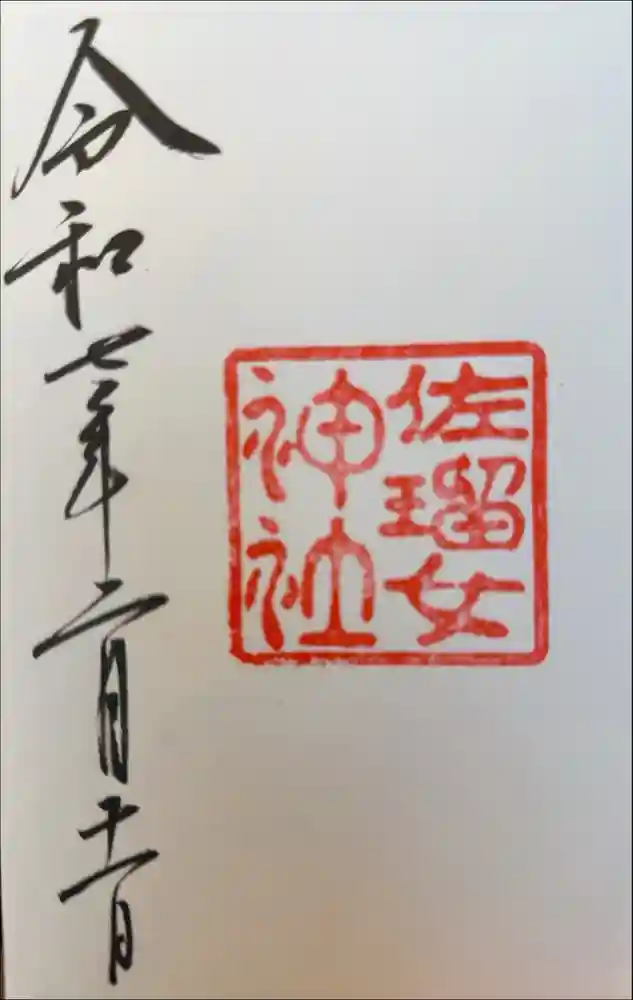 佐瑠女
神社
令和七年二月十一日